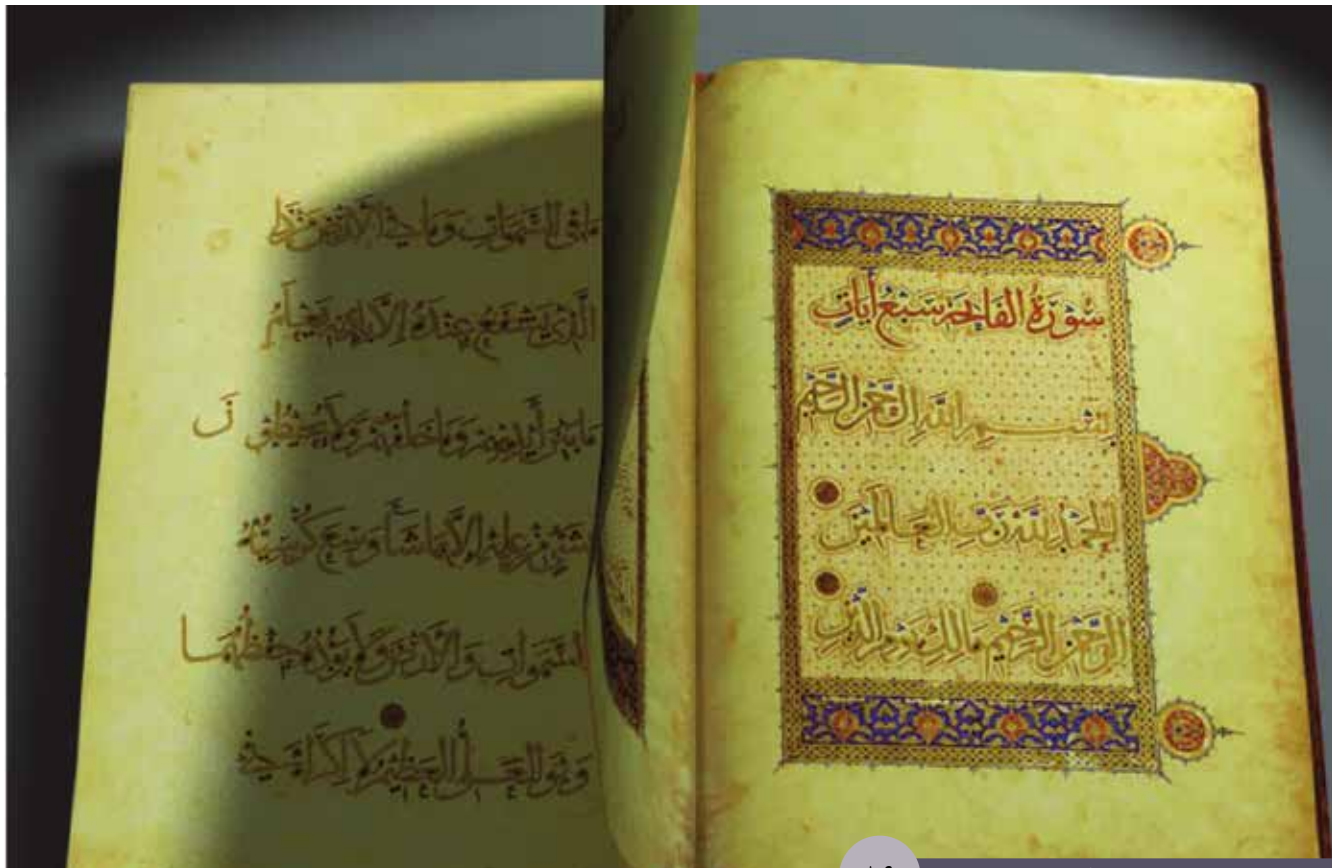 سُوْرَةُ الفَاتِحَة سَبْعُ أيَاتٍ
بِسْمِ اللَّهِ الرَّحْمَنِ الرَّحِيْمِ
الحَمْدُ لِلَّهِ رَبِّ العَالَمِيْنَ
الرَّحْمَنِ الرَّحِيْمِ مَالِكِ يَوْمِ الدِّيْنِ
مَا فِى السَّمَوَاتِ وَمَا فِى الْأَرْضِ مَنْ ذَا
الَّذِى يَشْفَعُ عِنْدَهُ إِلَّا بِإِذْنِهِ يَعْلَمُ
مَا بَيْنَ أَيْدِيْهِمْ وَمَا خَلْفَهُمْ وَلَا يُحِيْطُوْنَ
بِشَئٍ مِنْ عِلْمِهِ إِلَّا بِمَا شَأَ وَسِعَ كُرْسِيُّهُ
السَّمَوَاتِ وَالْأَرْضَ وَلَا يَؤُدُهُ حِفْظُهُمَا
وَهُوَ العَلِىُّ العَظِيْمُ لَا إِكْرَاهَ فِى